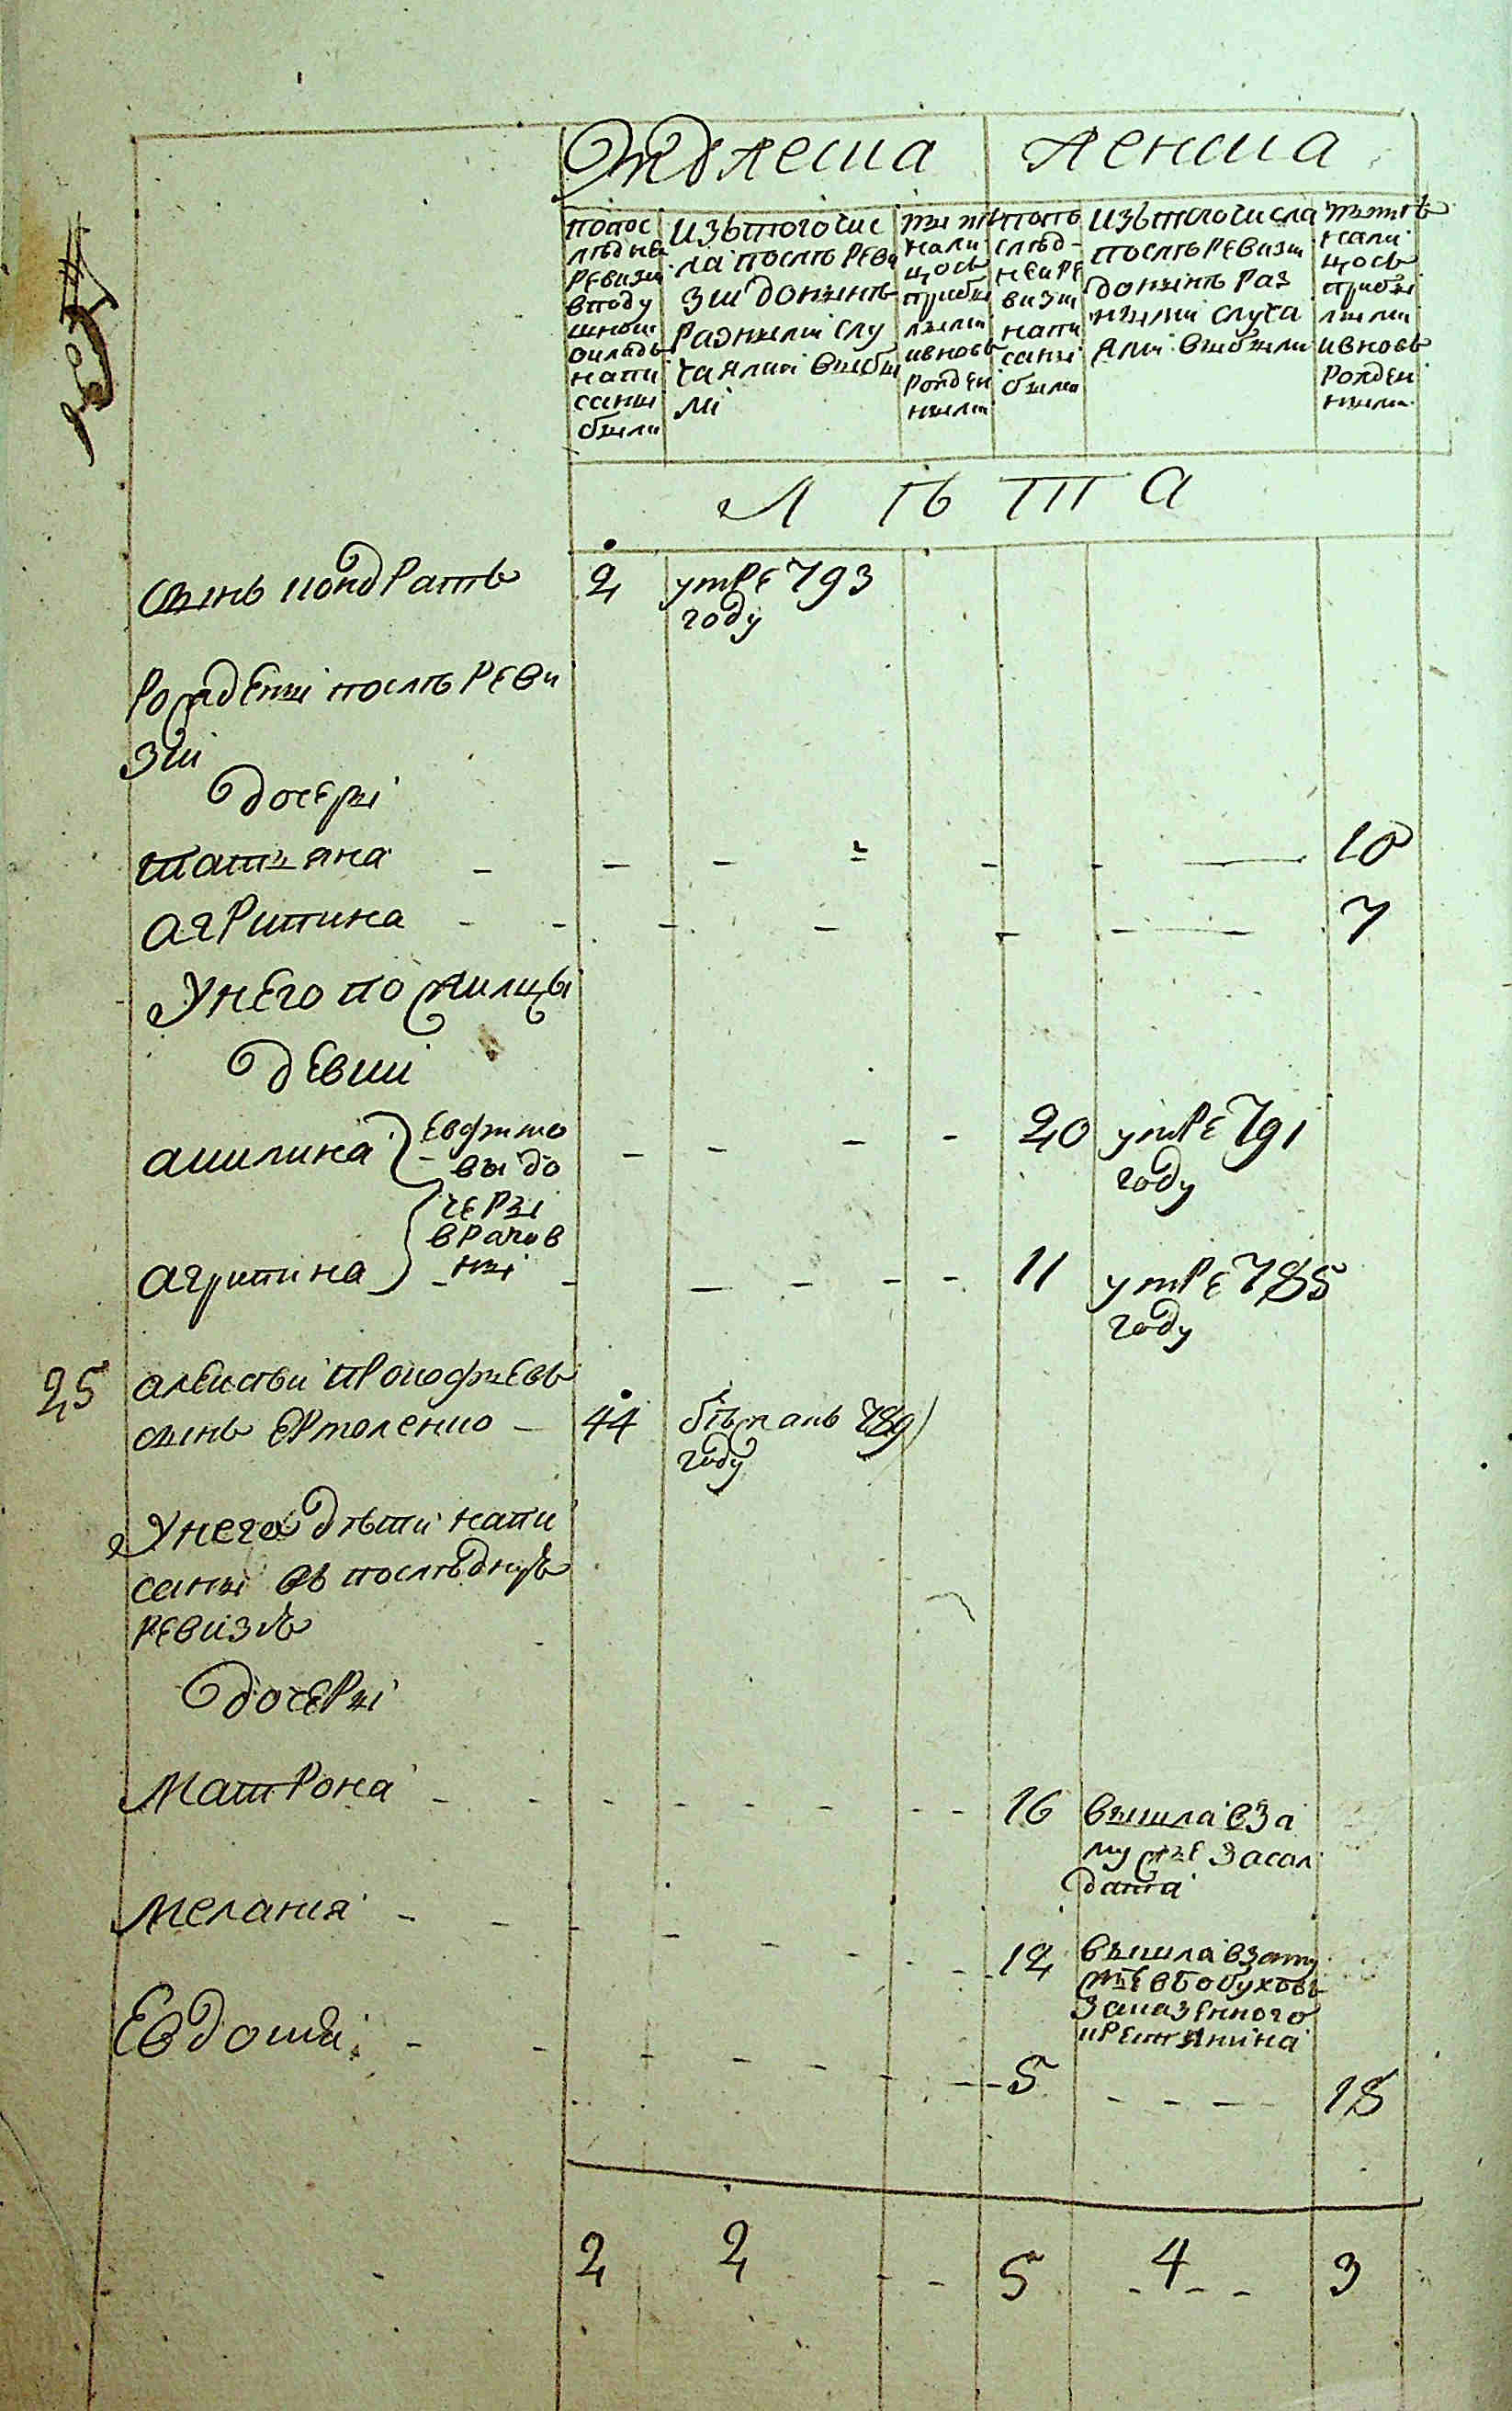 Мужеска
Женска
По пос
лѣдней
ревизи
в поду
шной
окладъ
напи
саны
были
Изъ того чис
ла послѣ реви
зии до нынѣ
разными слу
чаями выбы
ли
Нынѣ
нали
цо съ
прибы
лыми
и вновь
рожден
ными
По по
слѣд-
ней ре
визи
напи
саны
были
Изъ того числа
послѣ ревизии
до нынѣ раз
ными случа
ями выбыли
Нынѣ
нали
цо съ
прибы
лыми
и вновь
рожден
ными
Л ѣ т а
сынъ кондратъ 2 умре 793
году
Рождены послѣ реви
зии
дочери
татьяна - - - - - - 10
агрипина - - - - - - 7
У него пожилцы
девки
акилина Евфимо - - - - 20 умре 791
вы до году
чери
в раков
агрипина ны - - - - - 11 умре 785
году
25 алексѣи прокофьевъ
сынъ Ермоленко - 44 бѣжалъ 789
году
У него дѣти напи
саны въ последнуѣ
ревизѣ
дочери
Матрона - - - - - - 16 вышла в за
мужье за сол
дата
Мелания - - - - - - 12 вышла взаму
жье в Бобуховъ
за казенного
крестянина
Евдокия - - - - - - 5 - - - - 18
2 2 - - 5 - 4 - - 3